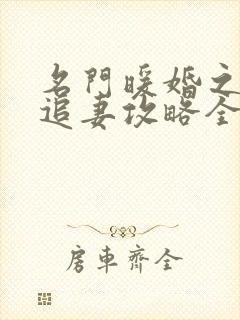 名門暖婚之
追妻攻略全
房車齊全